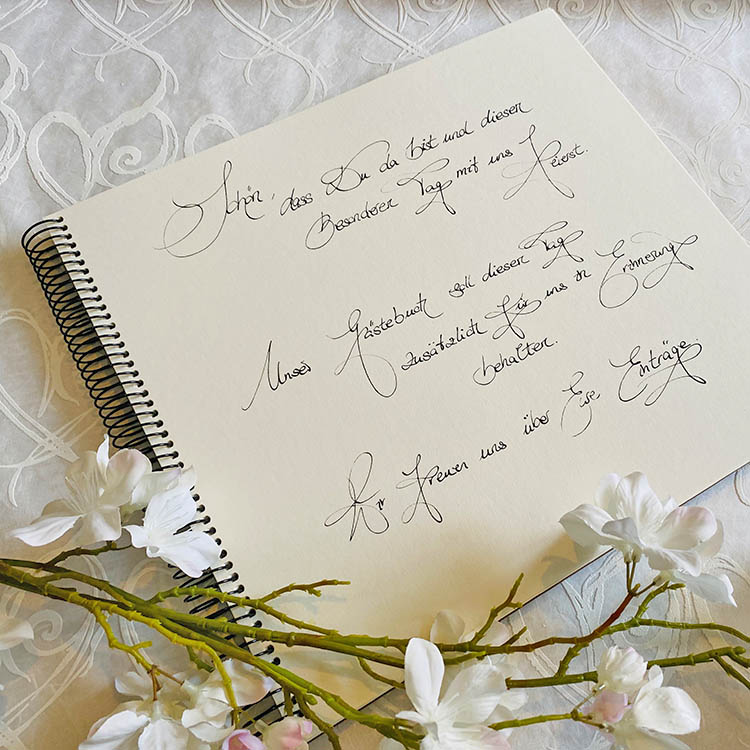 Schön, dass Du da bist und diesen
Besonderen Tag mit uns feierst.
Unser Gästebuch soll diesen Tag
zusätzlich für uns in Erinnerung
behalten.
Wir freuen uns über Eure Einträge.